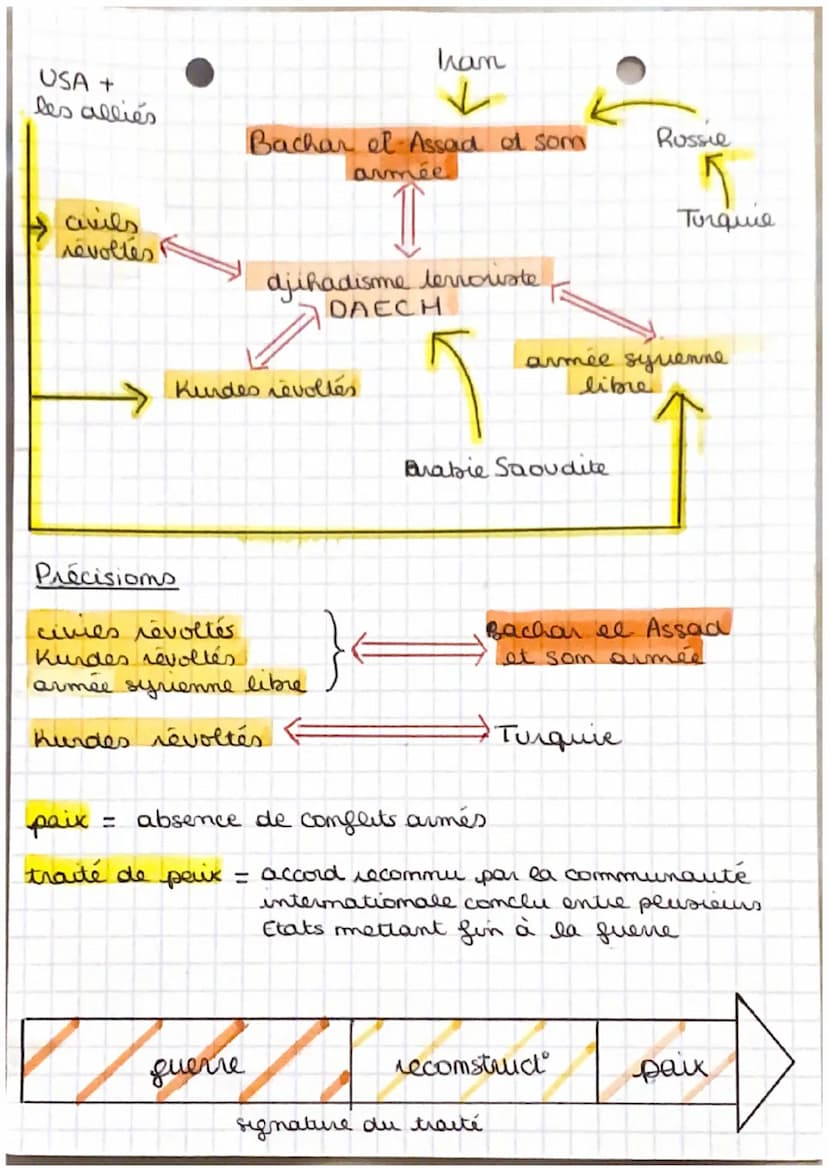 Iran
USA +
les alliés
Bachar el-Assad et son
armée
Russie
Turquie
civils
révoltés
djihadisme terroriste
DAECH
armée syrienne
libre
Kurdes révoltés
Arabie Saoudite
Précisions
civils révoltés
Kurdes révoltés
armée syrienne libre
Bachar el Assad
et son armée
Kurdes révoltés
Turquie
paix = absence de conflits armés
traité de paix = accord reconnu par la communauté
internationale conclu entre plusieurs
Etats mettant fin à la guerre
guerre
reconstruct°
paix
signature du traité